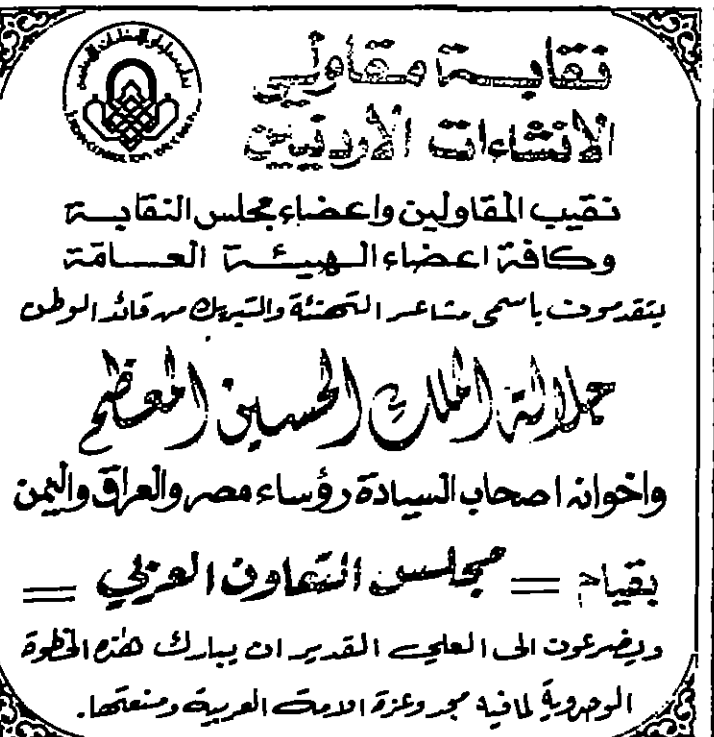 نقابة مقاولي
الانشاءات الأردنيين
نقيب المقاولين واعضاء مجلس النقابة
وكافة اعضاء الهيئة العامة
يتقدمون باسمى مشاعر التهنئة والتبريك من قائد الوطن
جلالة الملك الحسين المعظم
واخوانه اصحاب السيادة رؤساء مصر والعراق واليمن
بقيام = مجلس التعاون العربي =
ويضرعون الى العلي القدير ان يبارك هذه الخطوة
الوحدوية لما فيه مجد وعزة الامة العربية ومنعتها.